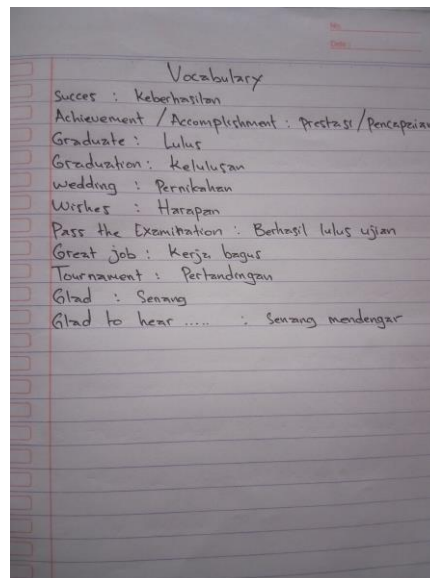 No.
Date:
Vocabulary
Succes : Keberhasilan
Achievement / Accomplishment : Prestasi / Pencapaian
Graduate : Lulus
Graduation : Kelulusan
Wedding : Pernikahan
Wishes : Harapan
Pass the Examination : Berhasil lulus ujian
Great job : Kerja bagus
Tournament : Pertandingan
Glad : Senang
Glad to hear ..... : Senang mendengar